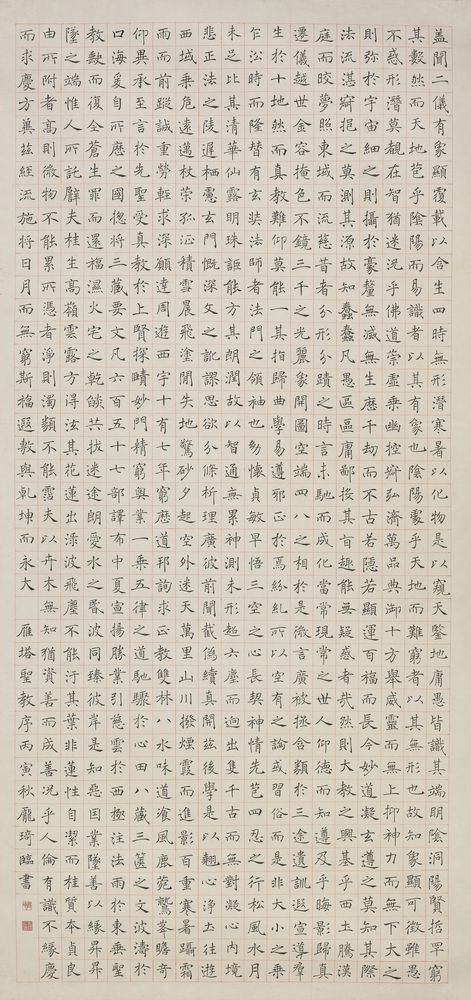 蓋聞二儀有象顯覆載以含生四時無形潛寒暑以化物是以窺天鑒地庸愚皆識其端明陰洞陽賢哲罕窮
其數然而天地苞乎陰陽而易識者以其有象也陰陽處乎天地而難窮者以其無形也故知象顯可徵雖愚
不惑形潛莫覩在智猶迷況乎佛道崇虛乘幽控寂弘濟萬品典御十方舉威靈而無上抑神力而無下大之
則彌於宇宙細之則攝於豪釐無滅無生歷千劫而不古若隱若顯運百福而長今妙道凝玄遵之莫知其際
法流湛寂挹之莫測其源故知蠢蠢凡愚區區庸鄙投其旨趣能無疑惑者哉然則大教之興基乎西土騰漢
庭而皎夢照東域而流慈昔者分形分蹟之時言未馳而成化當常現常之世人仰德而知遵及乎晦影歸真
遷儀越世金容掩色不鏡三千之光麗象開圖空端四八之相於是微言廣被拯含類於三途遺訓遐宣導群
生於十地然而真教難仰莫能一其指歸曲學易遵邪正於焉紛糺所以空有之論或習俗而是非大小之乘
乍沿時而隆替有玄奘法師者法門之領袖也幼懷貞敏早悟三空之心長契神情先苞四忍之行松風水月
未足比其清華仙露明珠詎能方其朗潤故以智通無累神測未形超六塵而迥出隻千古而無對凝心內境
悲正法之陵遲栖慮玄門慨深文之訛謬思欲分條析理廣彼前聞截偽續真開茲後學是以翹心淨土往遊
西域乘危遠邁杖策孤征積雪晨飛塗閒失地驚砂夕起空外迷天萬里山川撥煙霞而進影百重寒暑躡霜
雨而前蹤誠重勞輕求深願達周遊西宇十有七年窮歷道邦詢求正教雙林八水味道飡風鹿菀鷲峯瞻奇
仰異承至言於先聖受真教於上賢探賾妙門精窮奧業一乘五律之道馳驟於心田八藏三篋之文波濤於
口海爰自所歷之國總將三藏要文凡六百五十七部譯布中夏宣揚勝業引慈雲於西極注法雨於東垂聖
教缺而復全蒼生罪而還福濕火宅之乾燄共拔迷途朗愛水之昏波同臻彼岸是知惡因業墜善以緣昇昇
墜之端惟人所託譬夫桂生高嶺雲露方得泫其花蓮出淥波飛塵不能汙其葉非蓮性自潔而桂質本貞良
由所附者高則微物不能累所憑者淨則濁類不能霑夫以卉木無知猶資善而成善況乎人倫有識不緣慶
而求慶方冀茲經流施將日月而無窮斯福遐敷與乾坤而永大 雁塔聖教序丙寅秋龐琦臨書